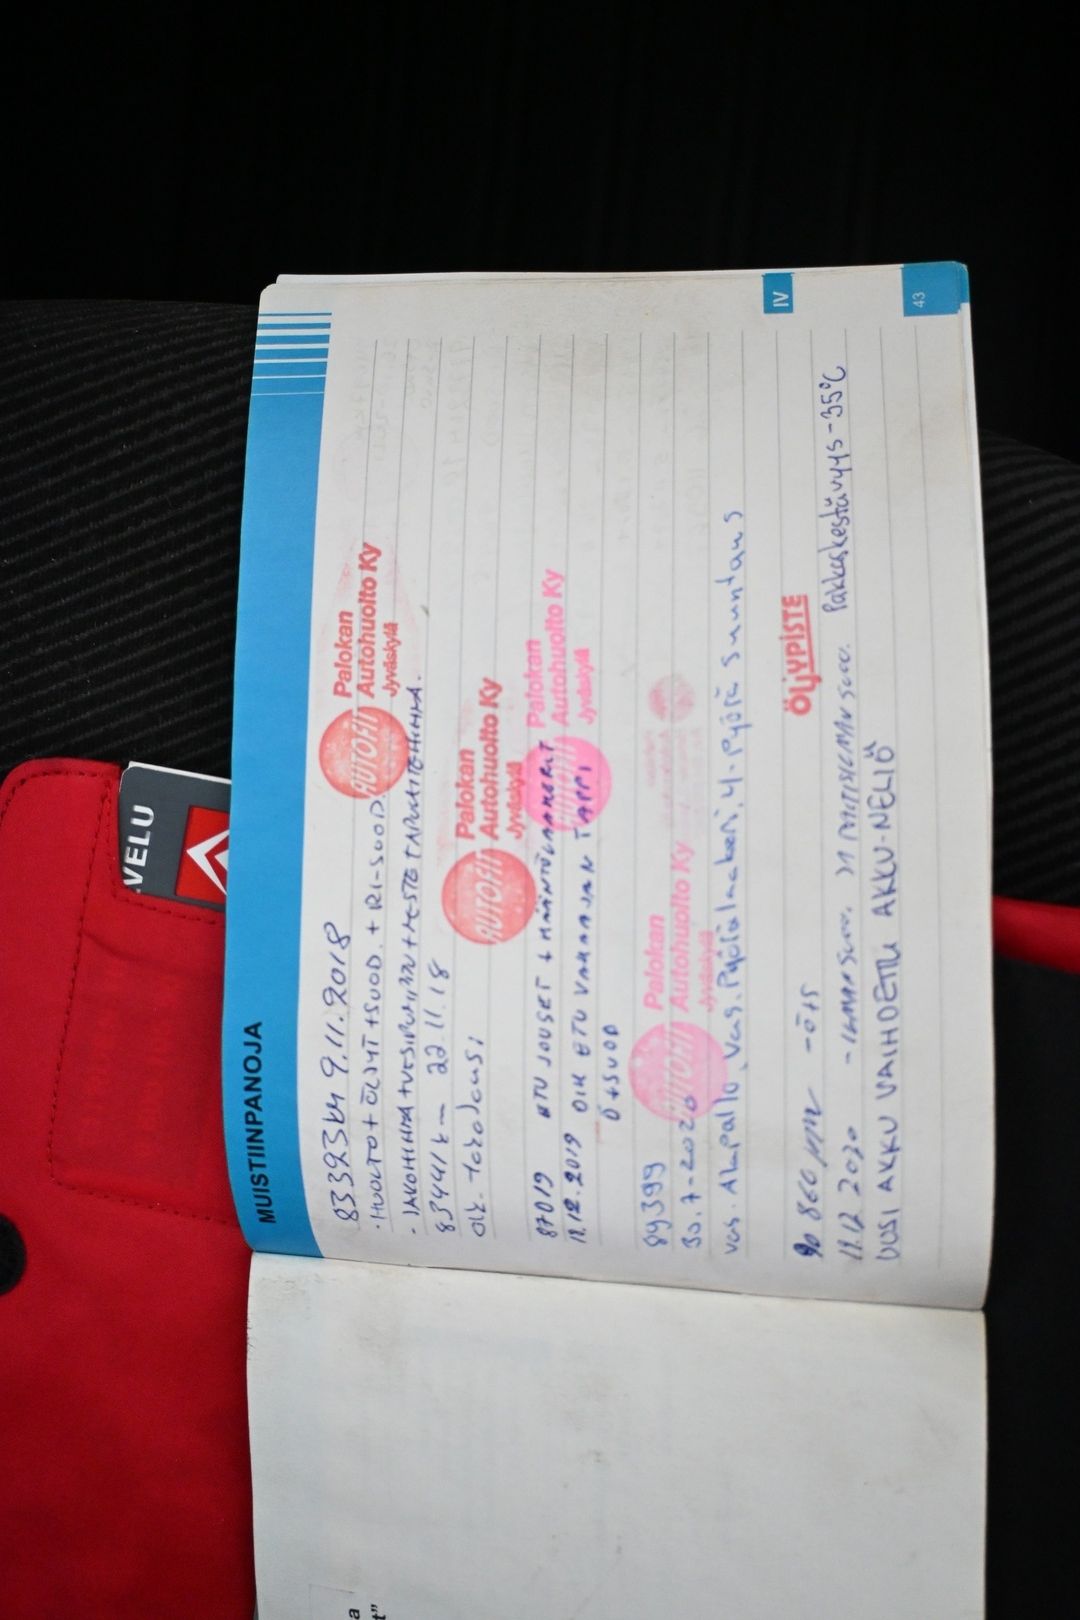 VELU
MUISTIINPANOJA
83393km 9.11.2018
AUTOFIT
Palokan
Autohuolto Ky
Jyväskylä
· HUOLTO + ÖLJYT + SUOD. + RI-SUOD.
· JAKOHIHNA + VESIPUMPPU + NESTE + APULAITEHIHNA.
83441k— 22.11.18
AUTOFIT
Palokan
Autohuolto Ky
Jyväskylä
87019 ETU JOUSET +
AUTOFIT
Palokan
Autohuolto Ky
Jyväskylä
12.2019 OIK ETU VAKAAJAN TAPPI
Ö+SUOD
89399
AUTOFIT
Palokan
Autohuolto Ky
Jyväskylä
30.7-2020
Vas. Alapallo, Vas. Pyöränlaakeri. 4-Pyörä Suuntaus
IV
90 860 -Ö+S
ÖLJYPISTE
12 2020 Pakkaskestävyys -35°C
UUSI AKKU VAIHDETTU AKKU-NELIÖ
43
a
t"